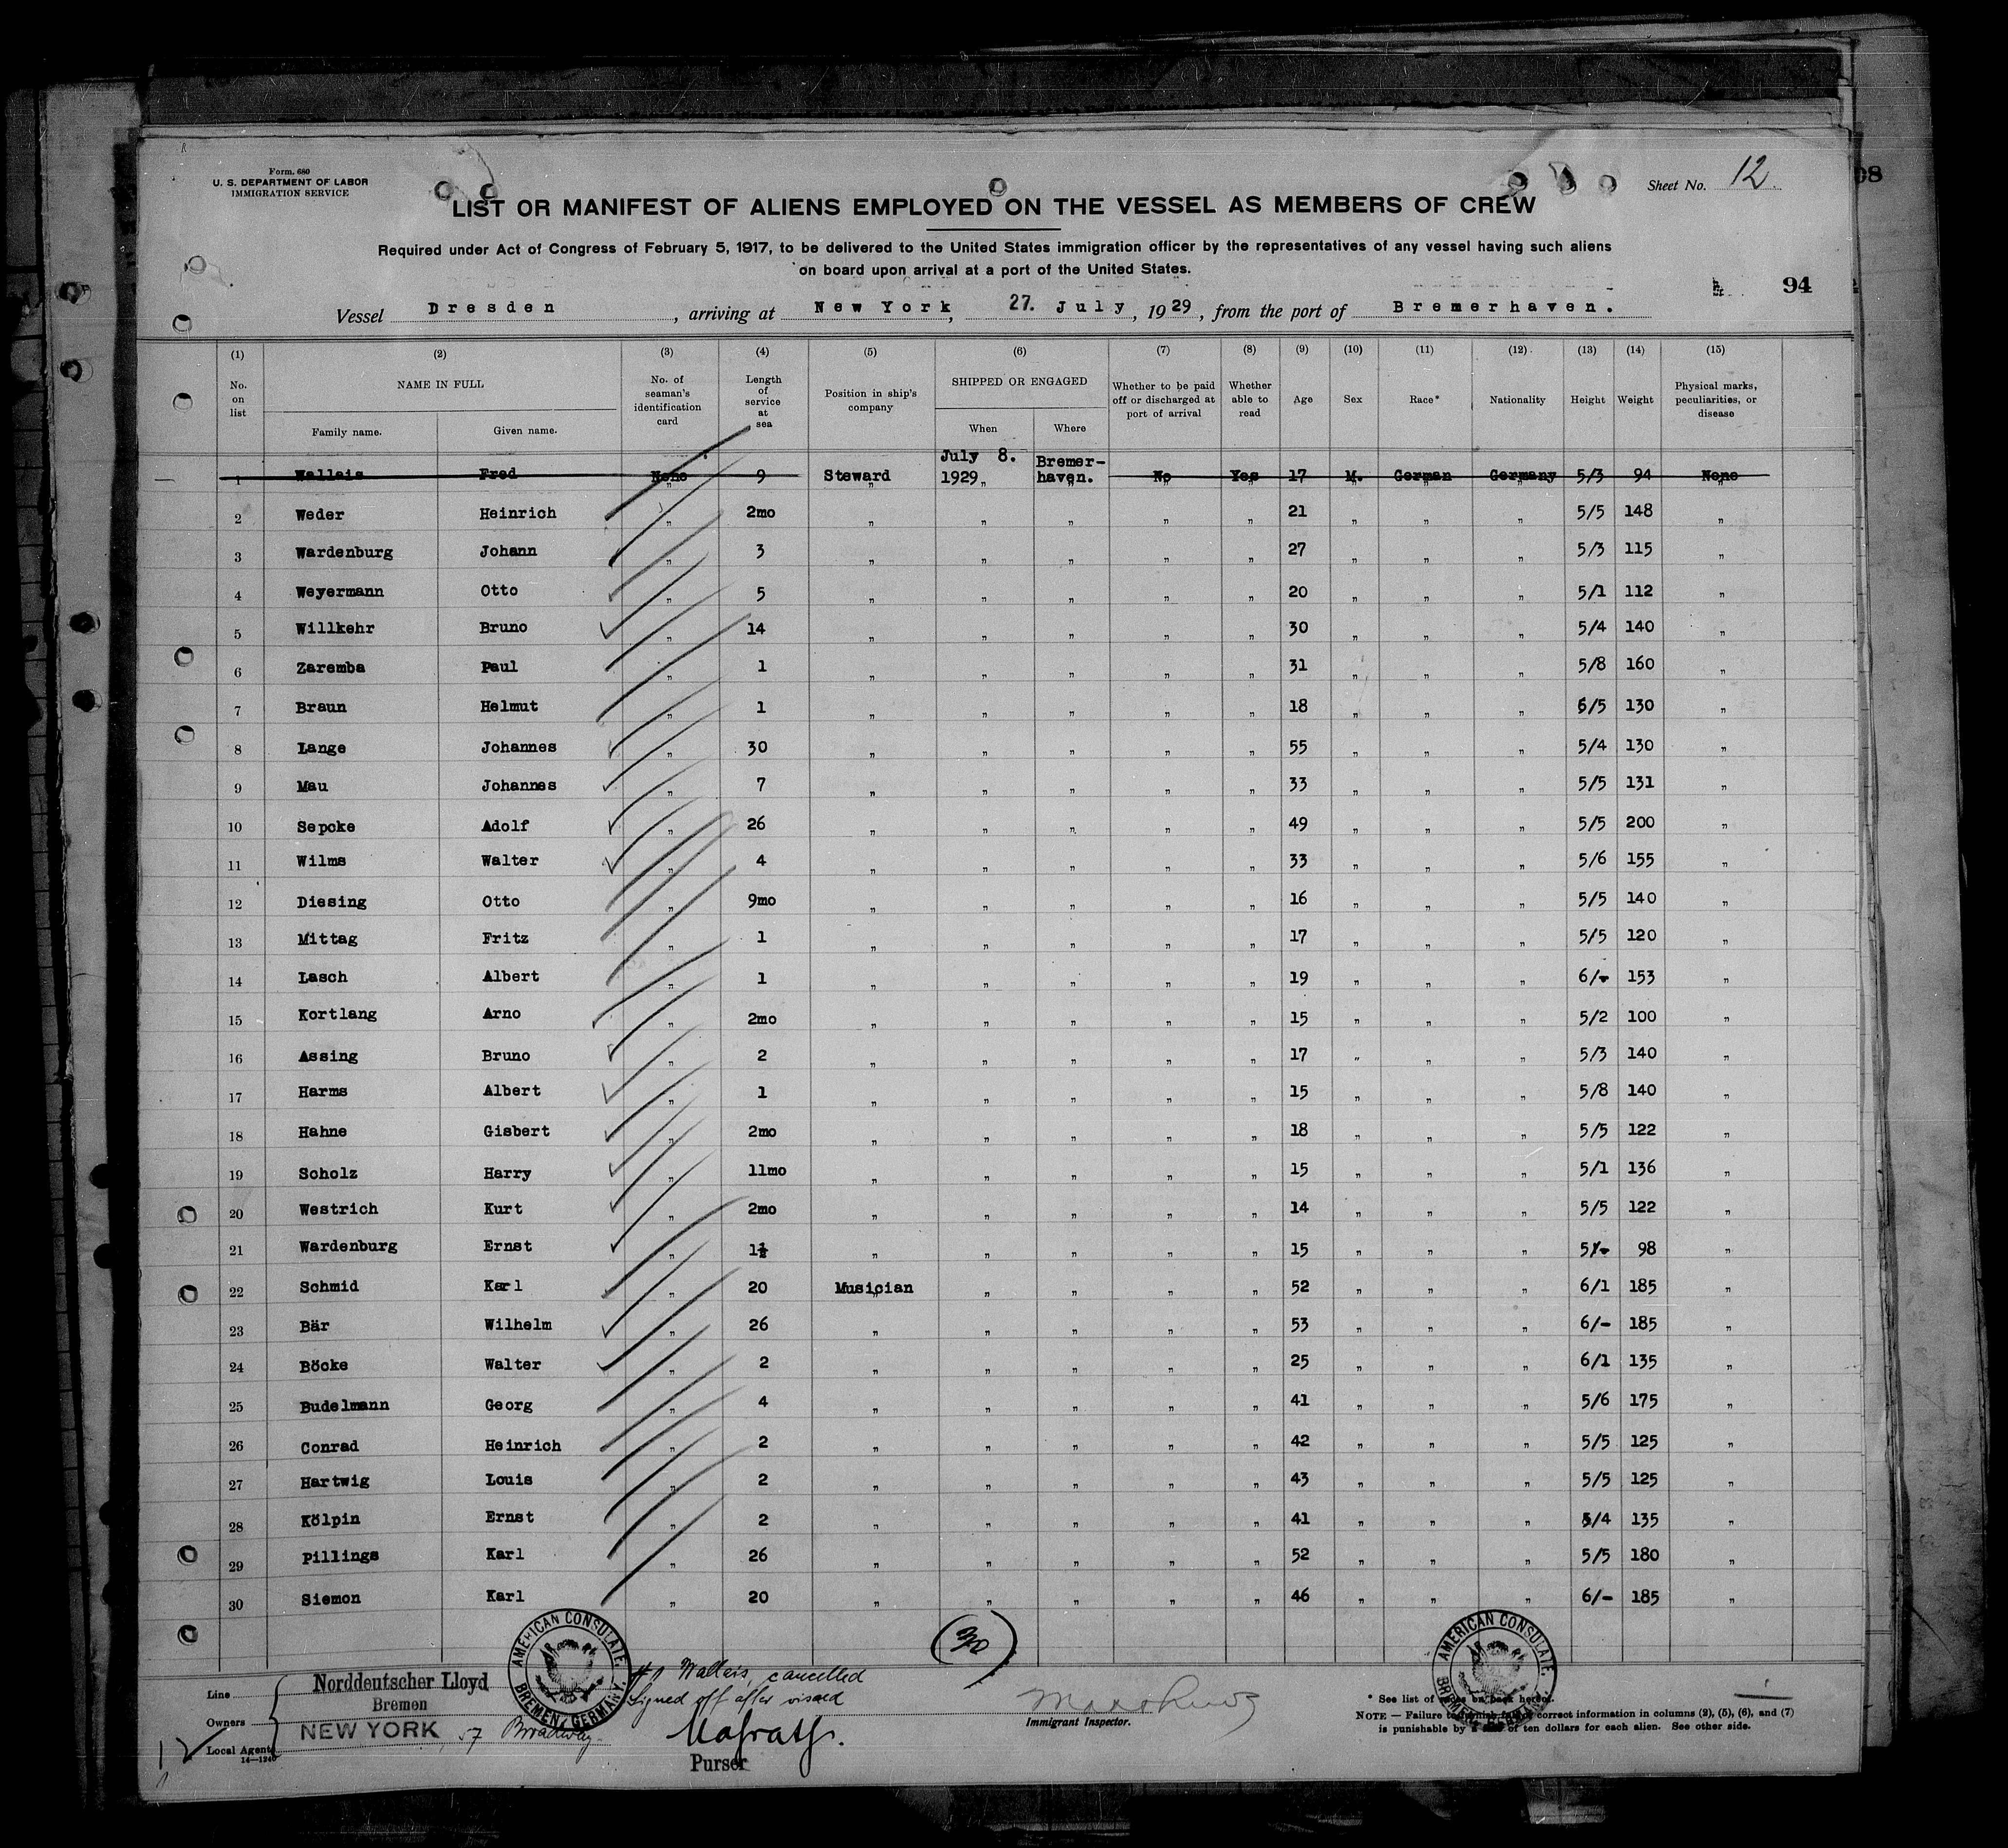 Form. 680
U. S. DEPARTMENT OF LABOR
IMMIGRATION SERVICE
Sheet No. 12.
LIST OR MANIFEST OF ALIENS EMPLOYED ON THE VESSEL AS MEMBERS OF CREW
Required under Act of Congress of February 5, 1917, to be delivered to the United States immigration officer by the representatives of any vessel having such aliens
on board upon arrival at a port of the United States.
94
Vessel Dresden, arriving at New York, 27. July, 1929, from the port of Bremerhaven.
(1) (2) (3) (4) (5) (6) (7) (8) (9) (10) (11) (12) (13) (14) (15)
No. on list NAME IN FULL Family name. Given name. No. of seaman's identification card Length of service at sea Position in ship's company SHIPPED OR ENGAGED When Where Whether to be paid off or discharged at port of arrival Whether able to read Age Sex Race* Nationality Height Weight Physical marks, peculiarities, or disease
1 Wallais Fred None 9 Steward July 8. 1929 Bremer-haven. No Yes 17 M. German Germany 5/3 94 None
2 Weder Heinrich " 2mo " " " " " 21 " " " 5/5 148 "
3 Wardenburg Johann " 3 " " " " " 27 " " " 5/3 115 "
4 Weyermann Otto " 5 " " " " " 20 " " " 5/1 112 "
5 Willkehr Bruno " 14 " " " " " 30 " " " 5/4 140 "
6 Zaremba Paul " 1 " " " " " 31 " " " 5/8 160 "
7 Braun Helmut " 1 " " " " " 18 " " " 5/5 130 "
8 Lange Johannes " 30 " " " " " 55 " " " 5/4 130 "
9 Mau Johannes " 7 " " " " " 33 " " " 5/5 131 "
10 Sepcke Adolf " 26 " " " " " 49 " " " 5/5 200 "
11 Wilms Walter " 4 " " " " " 33 " " " 5/6 155 "
12 Diesing Otto " 9mo " " " " " 16 " " " 5/5 140 "
13 Mittag Fritz " 1 " " " " " 17 " " " 5/5 120 "
14 Lasch Albert " 1 " " " " " 19 " " " 6/- 153 "
15 Kortlang Arno " 2mo " " " " " 15 " " " 5/2 100 "
16 Assing Bruno " 2 " " " " " 17 " " " 5/3 140 "
17 Harms Albert " 1 " " " " " 15 " " " 5/8 140 "
18 Hahne Gisbert " 2mo " " " " " 18 " " " 5/5 122 "
19 Scholz Harry " 11mo " " " " " 15 " " " 5/1 136 "
20 Westrich Kurt " 2mo " " " " " 14 " " " 5/5 122 "
21 Wardenburg Ernst " 1½ " " " " " 15 " " " 5/- 98 "
22 Schmid Karl " 20 Musician " " " " 52 " " " 6/1 185 "
23 Bär Wilhelm " 26 " " " " " 53 " " " 6/- 185 "
24 Böcke Walter " 2 " " " " " 25 " " " 6/1 135 "
25 Budelmann Georg " 4 " " " " " 41 " " " 5/6 175 "
26 Conrad Heinrich " 2 " " " " " 42 " " " 5/5 125 "
27 Hartwig Louis " 2 " " " " " 43 " " " 5/5 125 "
28 Kölpin Ernst " 2 " " " " " 41 " " " 5/4 135 "
29 Pillings Karl " 26 " " " " " 52 " " " 5/5 180 "
30 Siemon Karl " 20 " " " " " 46 " " " 6/- 185 "
30
AMERICAN CONSULATE, BREMEN, GERMANY.
AMERICAN CONSULATE, BREMEN, GERMANY.
Line Norddeutscher Lloyd
Bremen
Owners
NEW YORK, 57 Broadway
Local Agent
14—1240
12
#1 Wallais, cancelled
Signed off after visaed
Purser
Immigrant Inspector.
* See list of races on back hereof.
NOTE — Failure to furnish full or correct information in columns (2), (5), (6), and (7)
is punishable by a fine of ten dollars for each alien. See other side.